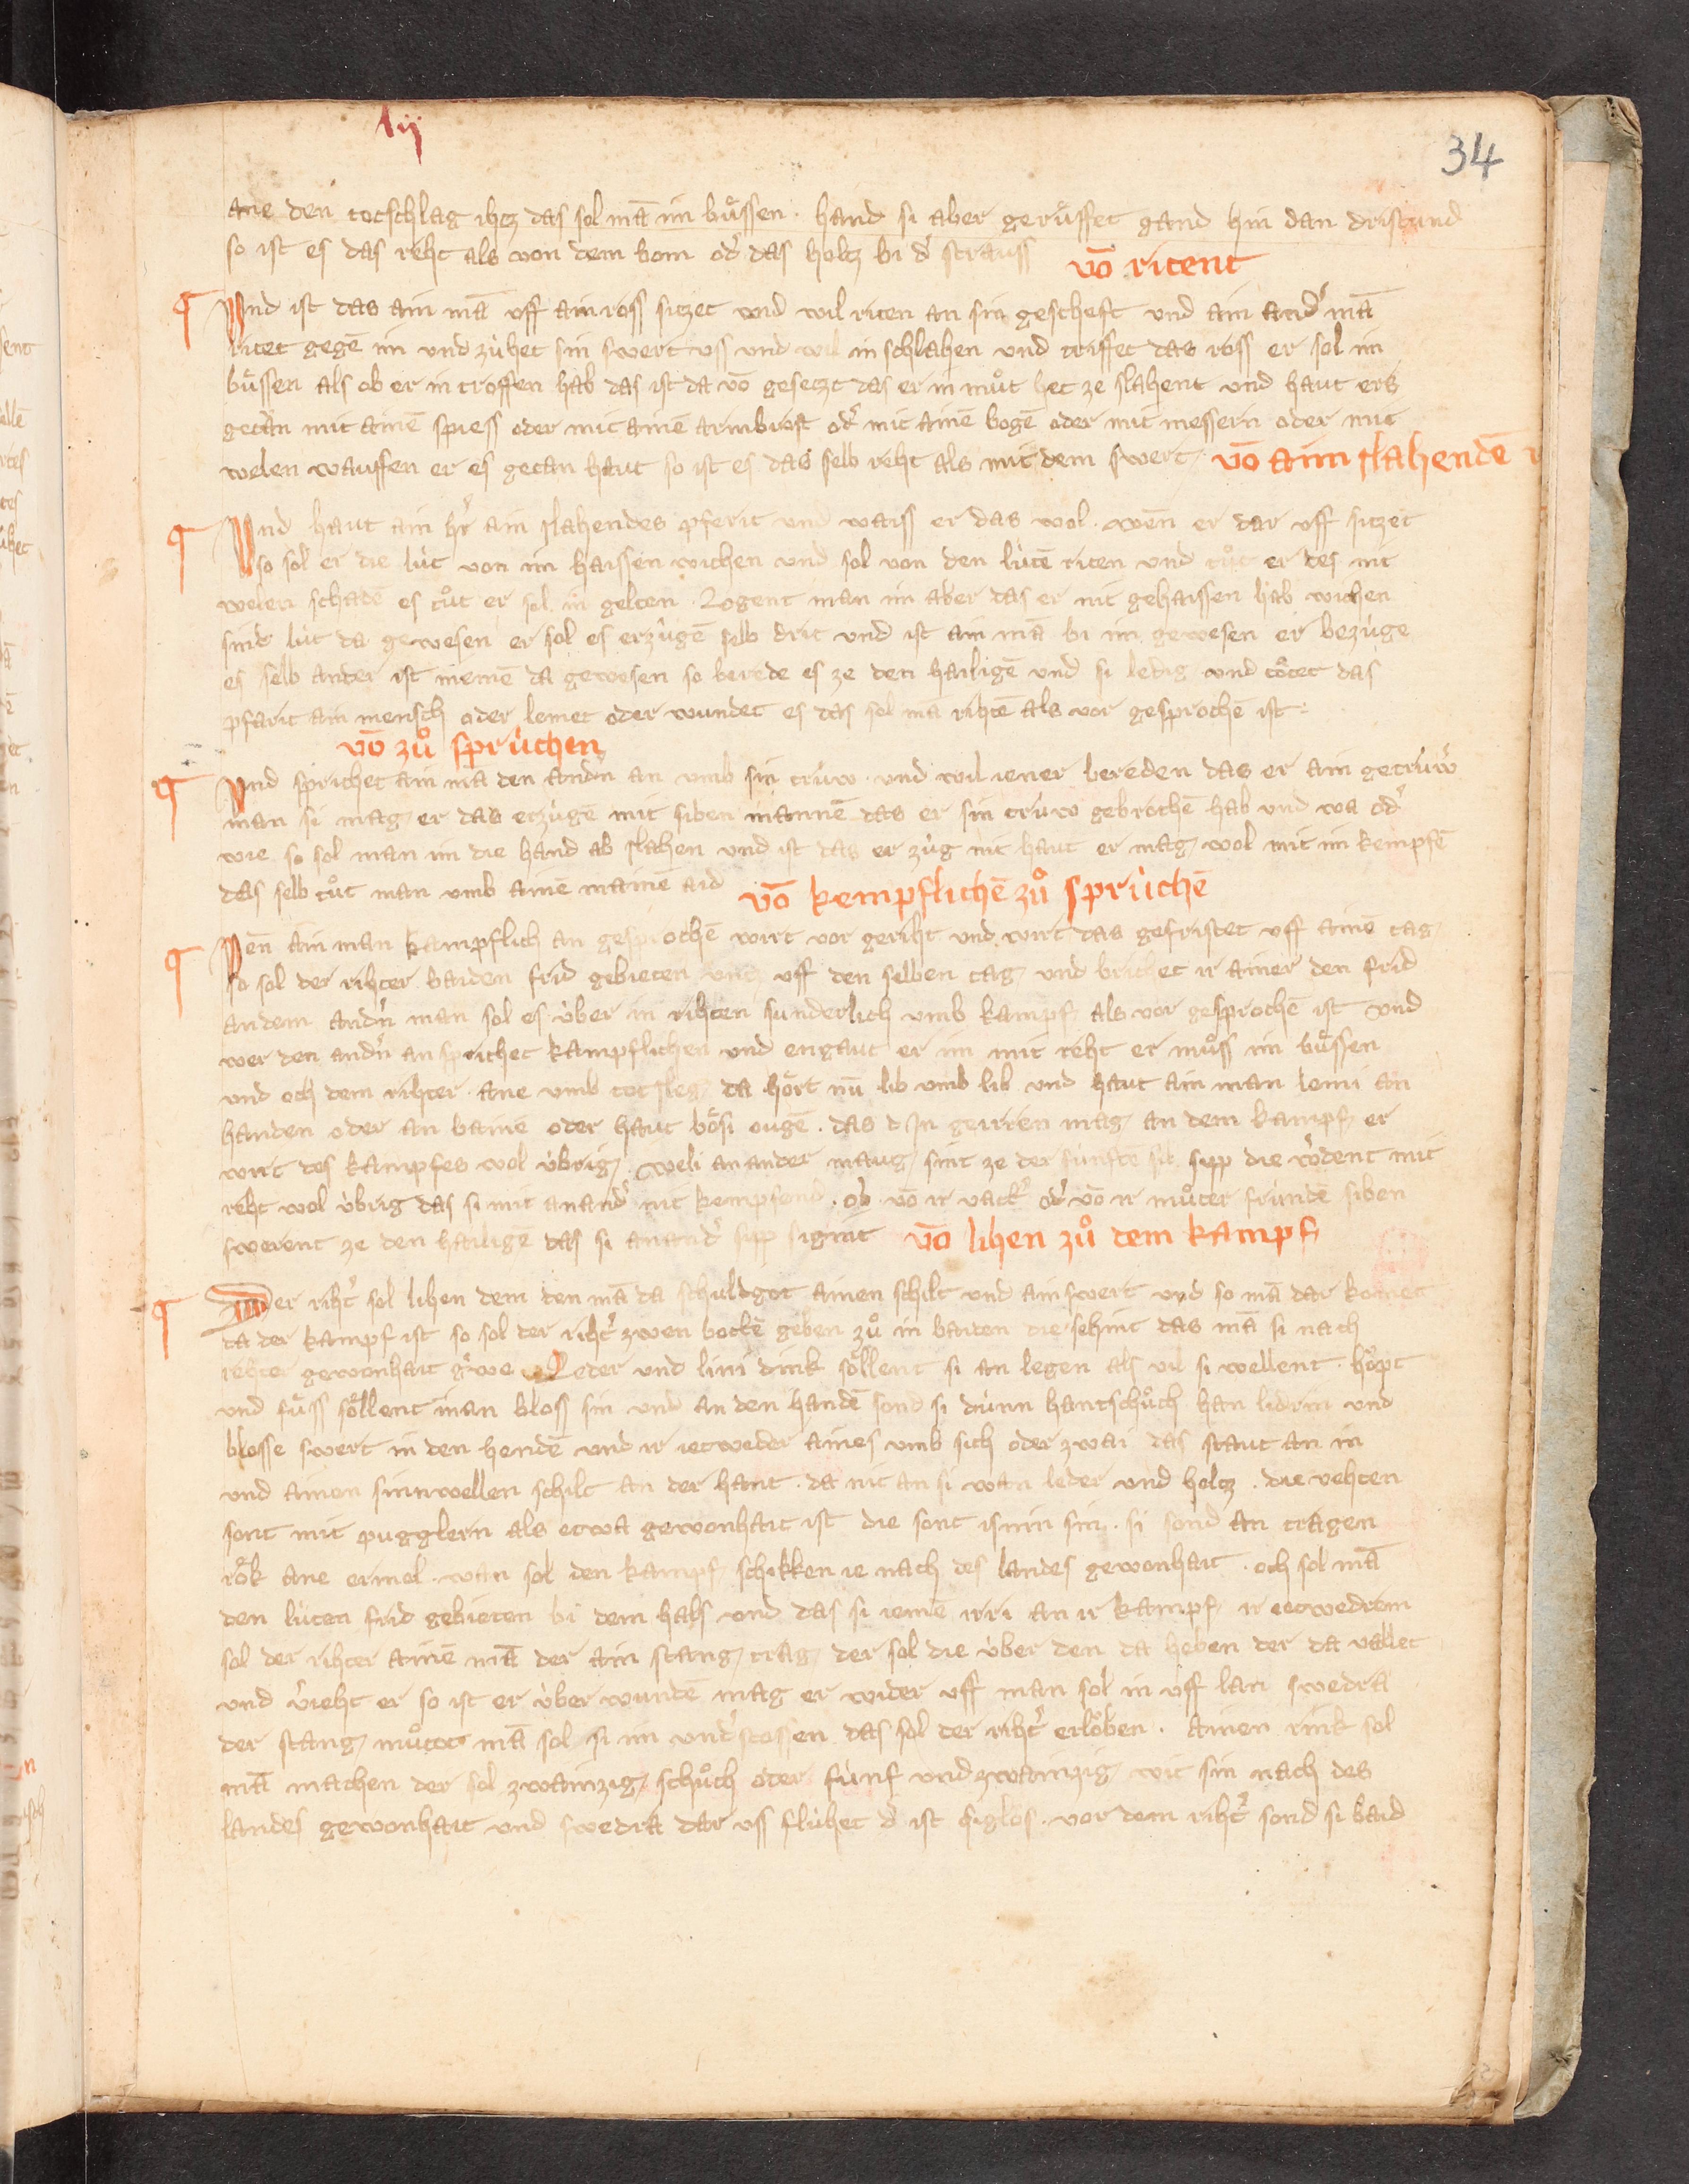 lij
34
ane den totschlag ihtz das sol mā im bůssen · hand si aber gerůffet gand hin dan dristund
so ist es das reht als von dem bom od' das holtz bi d' strauss vō ritent
¶ Und ist das ain mā uff ain ross sitzet und wil riten an sin gescheft und ain and' mā
ritet gegē im und zùhet sin swert uss und wil in schlahen und triffet das ross er sol im
bůssen als ob er in troffen hab das ist da vō gesetzt das er in můt het ze slahent und haut ers
getān mit ainē spiess oder mit ainē armbrost od' mit ainē bogē oder mit messern oder mit
welen wauffen er es getan haut so ist es das selb reht als mit dem swert · vō aim slahendē
¶ Und haut ain h'r ain slahendes pferit und waiss er das wol · wen̄ er dar uff sitzet
so sol er die lùt von im haissen wichen und sol von den lùtē riten und tůt er des nit
welen schadē es tůt er sol in gelten · Logent man im aber das er nit gehaissen hab wichen
sind lùt da gewesen er sol es erzùgē selb drit und ist ain mā bi im gewesen er bezùge
es selb ander ist niemē da gewesen so berede es ze den hailigē und si ledig und tôtet das
pfarit ain mensch oder lemet oder wundet es das sol mā rihtē als vor gesprochē ist :
vō zů sprùchen
¶ Und sprichet ain mā den andn' an umb sin trùw · und wil iener bereden das er ain getrùw'
man si mag er das erzùgē mit siben mannē das er sin trùw gebrochē hab und wa od'
wie so sol man im die hand ab slahen und ist das er zùg nit haut er mag wol mit im kempfē
das selb tůt man umb ainē mainē aid vō kempflichē zů sprùchē
¶ Wen̄ ain man kampflich an gesprochē wirt vor geriht und wirt das gefristet uff ainē tag
so sol der rihter baiden frid gebieten und uff den selben tag und brichet ir ainer den frid
an dem andn' man sol es ùber in rihten sunderlich umb kampf als vor gesprochē ist Und
wer den andn' an sprichet kampflichen und engaut er im mit reht er můss im bůssen
und och dem rihter · ane umb totsleg da hôrt nū lib umb lib und haut ain man lemi an
handen oder an bainē oder haut bôsi ougē · das d in geirren mag an dem kampf er
wirt des kampfes wol ùbrig · weli an ander maug sint ze der fùnftē sip sipp die wôdent mit
reht wol ùbrig das si mit anand' nit kempfend · ob vō ir vatt' od' vō ir můter frùndē siben
swerent ze den hailigē das si anand' sipp sigint vō lihen zů dem kampf
¶ Der riht' sol lihen dem den mā da schuldgot ainen schilt und ain swert und so mā dar komet
da der kampf ist so sol der riht' zwen bottē geben zů in baiden die sehint das mā si nach
rehter gewonhait g'we Leder und lini dink sôllent si an legen als vil si wellent · hôpt
und fůss sôllent man bloss sin und an den handē sond si dùnn hantschůch han lidrin und
blosse swert in den hendē und ir ietwedder aines umb sich oder zwai das staut an in
und ainen sinwellen schilt an der hant · da nit an si wan leder und holtz · die vehten
sont mit pugglern als etwa gewonhait ist die sont isinin sin · si sond an tragen
rôk ane ermel · wan sol den kampf schikken ie nach des landes gewonhait · och sol mā
den lùten frid gebieten bi dem hals und das si iemē irri an ir kampf ir ietwedrem
sol der rihter ainē mā der ain stang trag der sol die ùber den da heben der da vallet
und v'ieht er so ist er ùber wundē mag er wider uff man sol in uff lan swedra
der stang můtet mā sol si im und'stossen das sol der riht' erlôben · ainen rink sol
mā machen der sol zwainzig schůch oder fùnf und zwainzig wit sin nach des
landes gewonhait und swedra dar uss flùhet d' ist siglos · vor dem riht' sond si baid